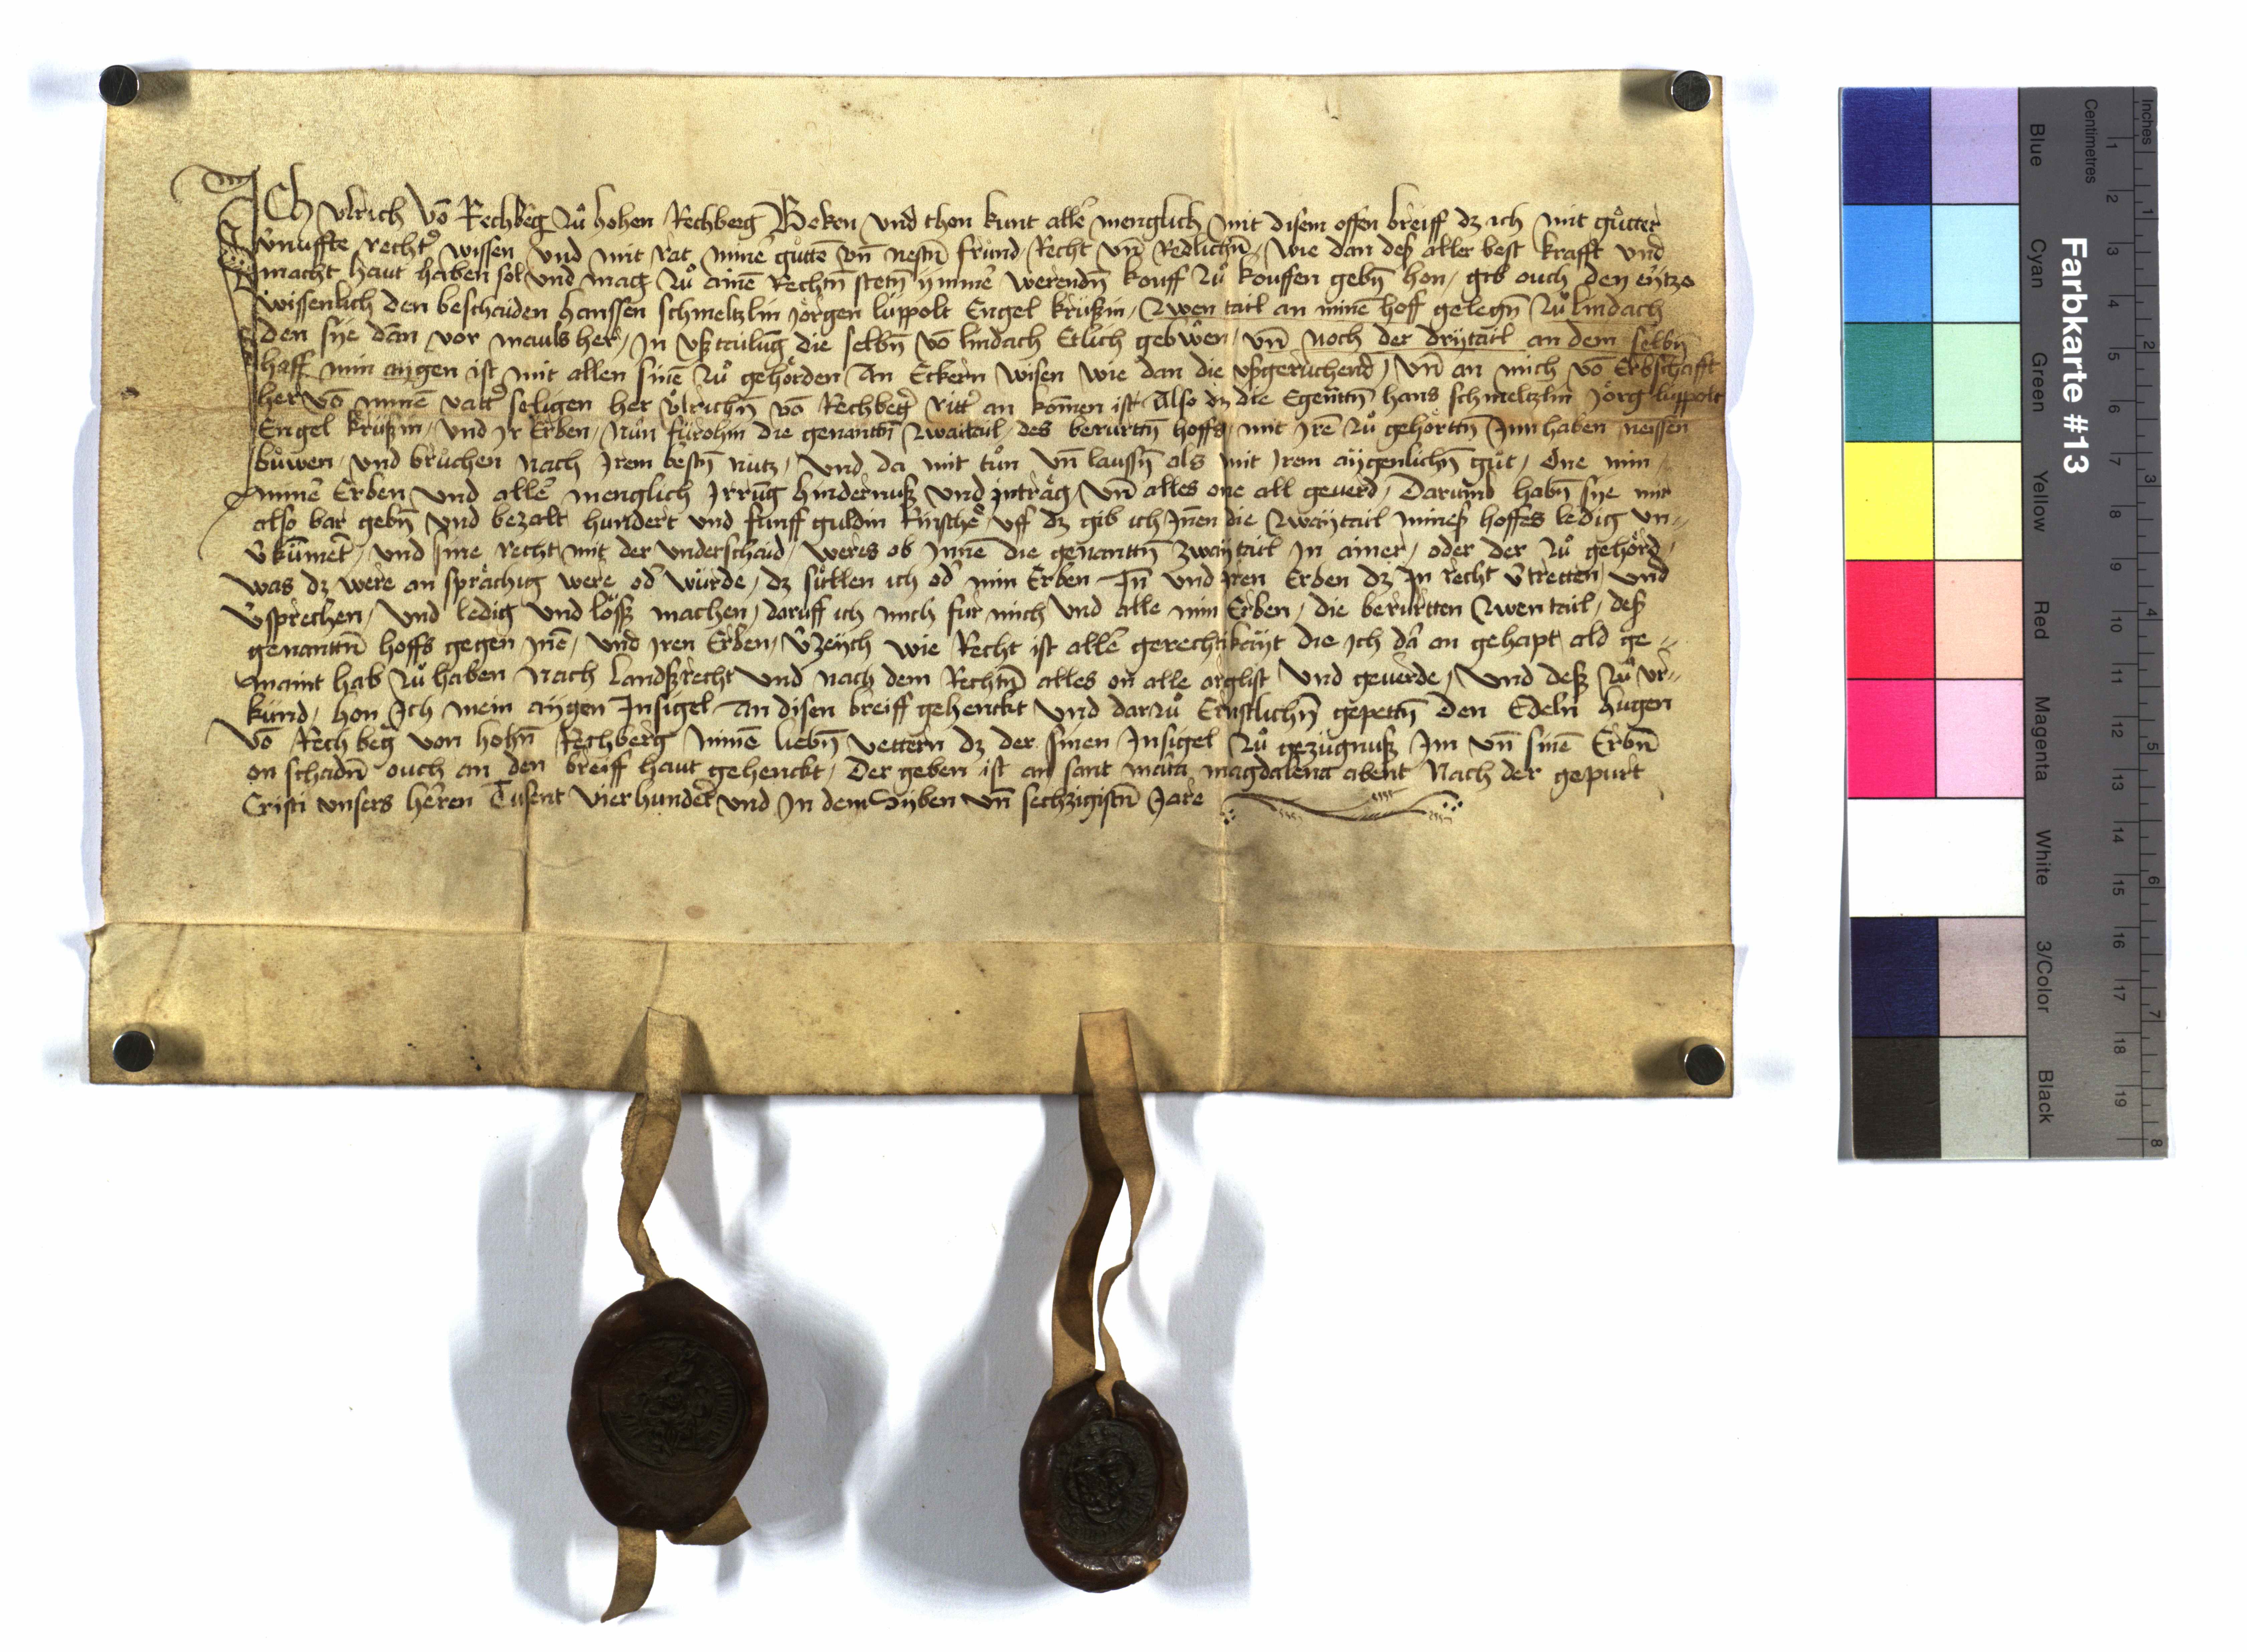 Ich vlrich vō Rechbėg zů hohen Rechberg Beken vnd thon kunt alle᷑ menglich mit disem offen breiff dz ich mit gůtter
v᷑nufftė recht᷑ wissen vnd mit rat mine᷑ gůttē vn̄ nestn̄ frund Recht vn̄ Redlichn̄ / wie dan deß aller best krafft vnd
macht haut haben sol vnd mag zů ainē Rechtn̄ stetn̄ ymme᷑ werendn̄ kouff zů kouffen gebn̄ hon / gib ouch den eytzo
wissenlich den beschaiden hanssen schmeltzlin Jörgen lùppolt Engel krùßin / zwen tail an minē hoff gelegn̄ zů lindach
den sye dan vor mauls her / In vßtailūg die selbn̄ vō lindach Etlich gebwen / vn̄ noch der drytail an dem selbn̄
hoff min aygen ist mit allen sinē zů gehörden An Eckern wisen wie dan die vßgeruchend / vn̄ an mich vō Erbschafft
her vō minē vatt᷑ seligen her v̊lrichn̄ vō Rechbeg᷑ ritt᷑ an komen ist Also dz die Egenātn̄ hans schmeltzlin Jörg lùppolt
Engel krùßin / vnd Jr Erben / Nun fùrohin die genantn̄ zwaitail / des berurttn̄ hoffs / mit Jrē zů gehörttn̄ Jnn haben neissen
bùwen / vnd brůchen Nach Jrem bestn̄ nutz / vnd da mit tůn vn̄ laussn̄ als mit Jrem aygenlichn̄ gůt / One min /
mine᷑ Erben vnd alle᷑ menglich Jrrūg hindernuß vnd Jnträg / vn̄ alles one all geuerd / Darumb habn̄ sye mir
also bar gebn̄ vnd bezalt hundert vnd funff guldin Rinsche᷑ / vff dz gib ich Jnen die zwaytail mineß hoffes ledig vn-
v᷑kùmet᷑ / vnd sine recht mit der vnderschaid / weris ob Jnnē die genanttn̄ zwaytail Jn ainer / oder der zů gehörd /
was dz were an sprächig were od᷑ wùrde / dz sùllen ich od᷑ min Erben Jn̄ vnd Jren Erben dz Jn recht v᷑tretten / vnd
v᷑sprechen / vnd ledig vnd löß machen / daruff ich mich fùr mich vnd alle min Erben / die berùrtten zwen tail / deß
genanttn̄ hoffs gegen Jnē / vnd Jren Erben / v᷑zeych wie Recht ist alle᷑ gerechtikayt die Jch dā an gehapt ald ge-
maint hab zů haben Nach landßrecht vnd nach dem Rechtn̄ alles on alle arglist vnd geuerde / vnd deß zů vr-
kùnd / hon Jch mein aygen Jnsigel An disen breiff gehenckt vnd darzů Ernstlichn̄ gepettn̄ Den Edeln hugen
vō Rech beg᷑ von hohn̄ Rechberg minē liebn̄ vettern dz der sinen Jnsigel zů gezùgnuß Jm vn̄ sinē Erbn̄
on schadn̄ ouch an den breiff haut gehenckt / Der geben ist an sant maria magdalena abent Nach der gepurt
Cristi vnsers heren Tusent vierhundert vnd Jn dem Syben vn̄ sechzigistn̄ Jare
Farbkarte #13
Inches
Centimetres
1 2 3 4 5 6 7 8
1 2 3 4 5 6 7 8 9 10 11 12 13 14 15 16 17 18 19
Blue
Cyan
Green
Yellow
Red
Magenta
White
3/Color
Black